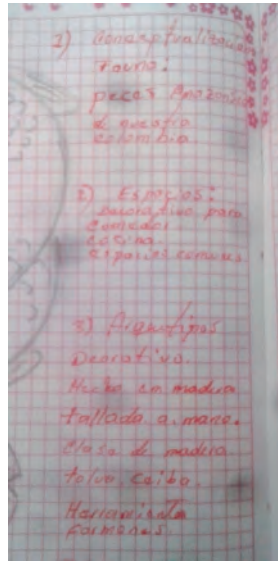 1) Conceptualización
Fauna:
peces Amazonas
de nuestra
colombia
2) Espacios:
Decorativo para
comedor
cocina.
espacios comunes.
3) Arquetipos
Decorativo.
Hecho en madera
tallada a mano.
Clase de madera
tolua ceiba.
Herramienta
formones.